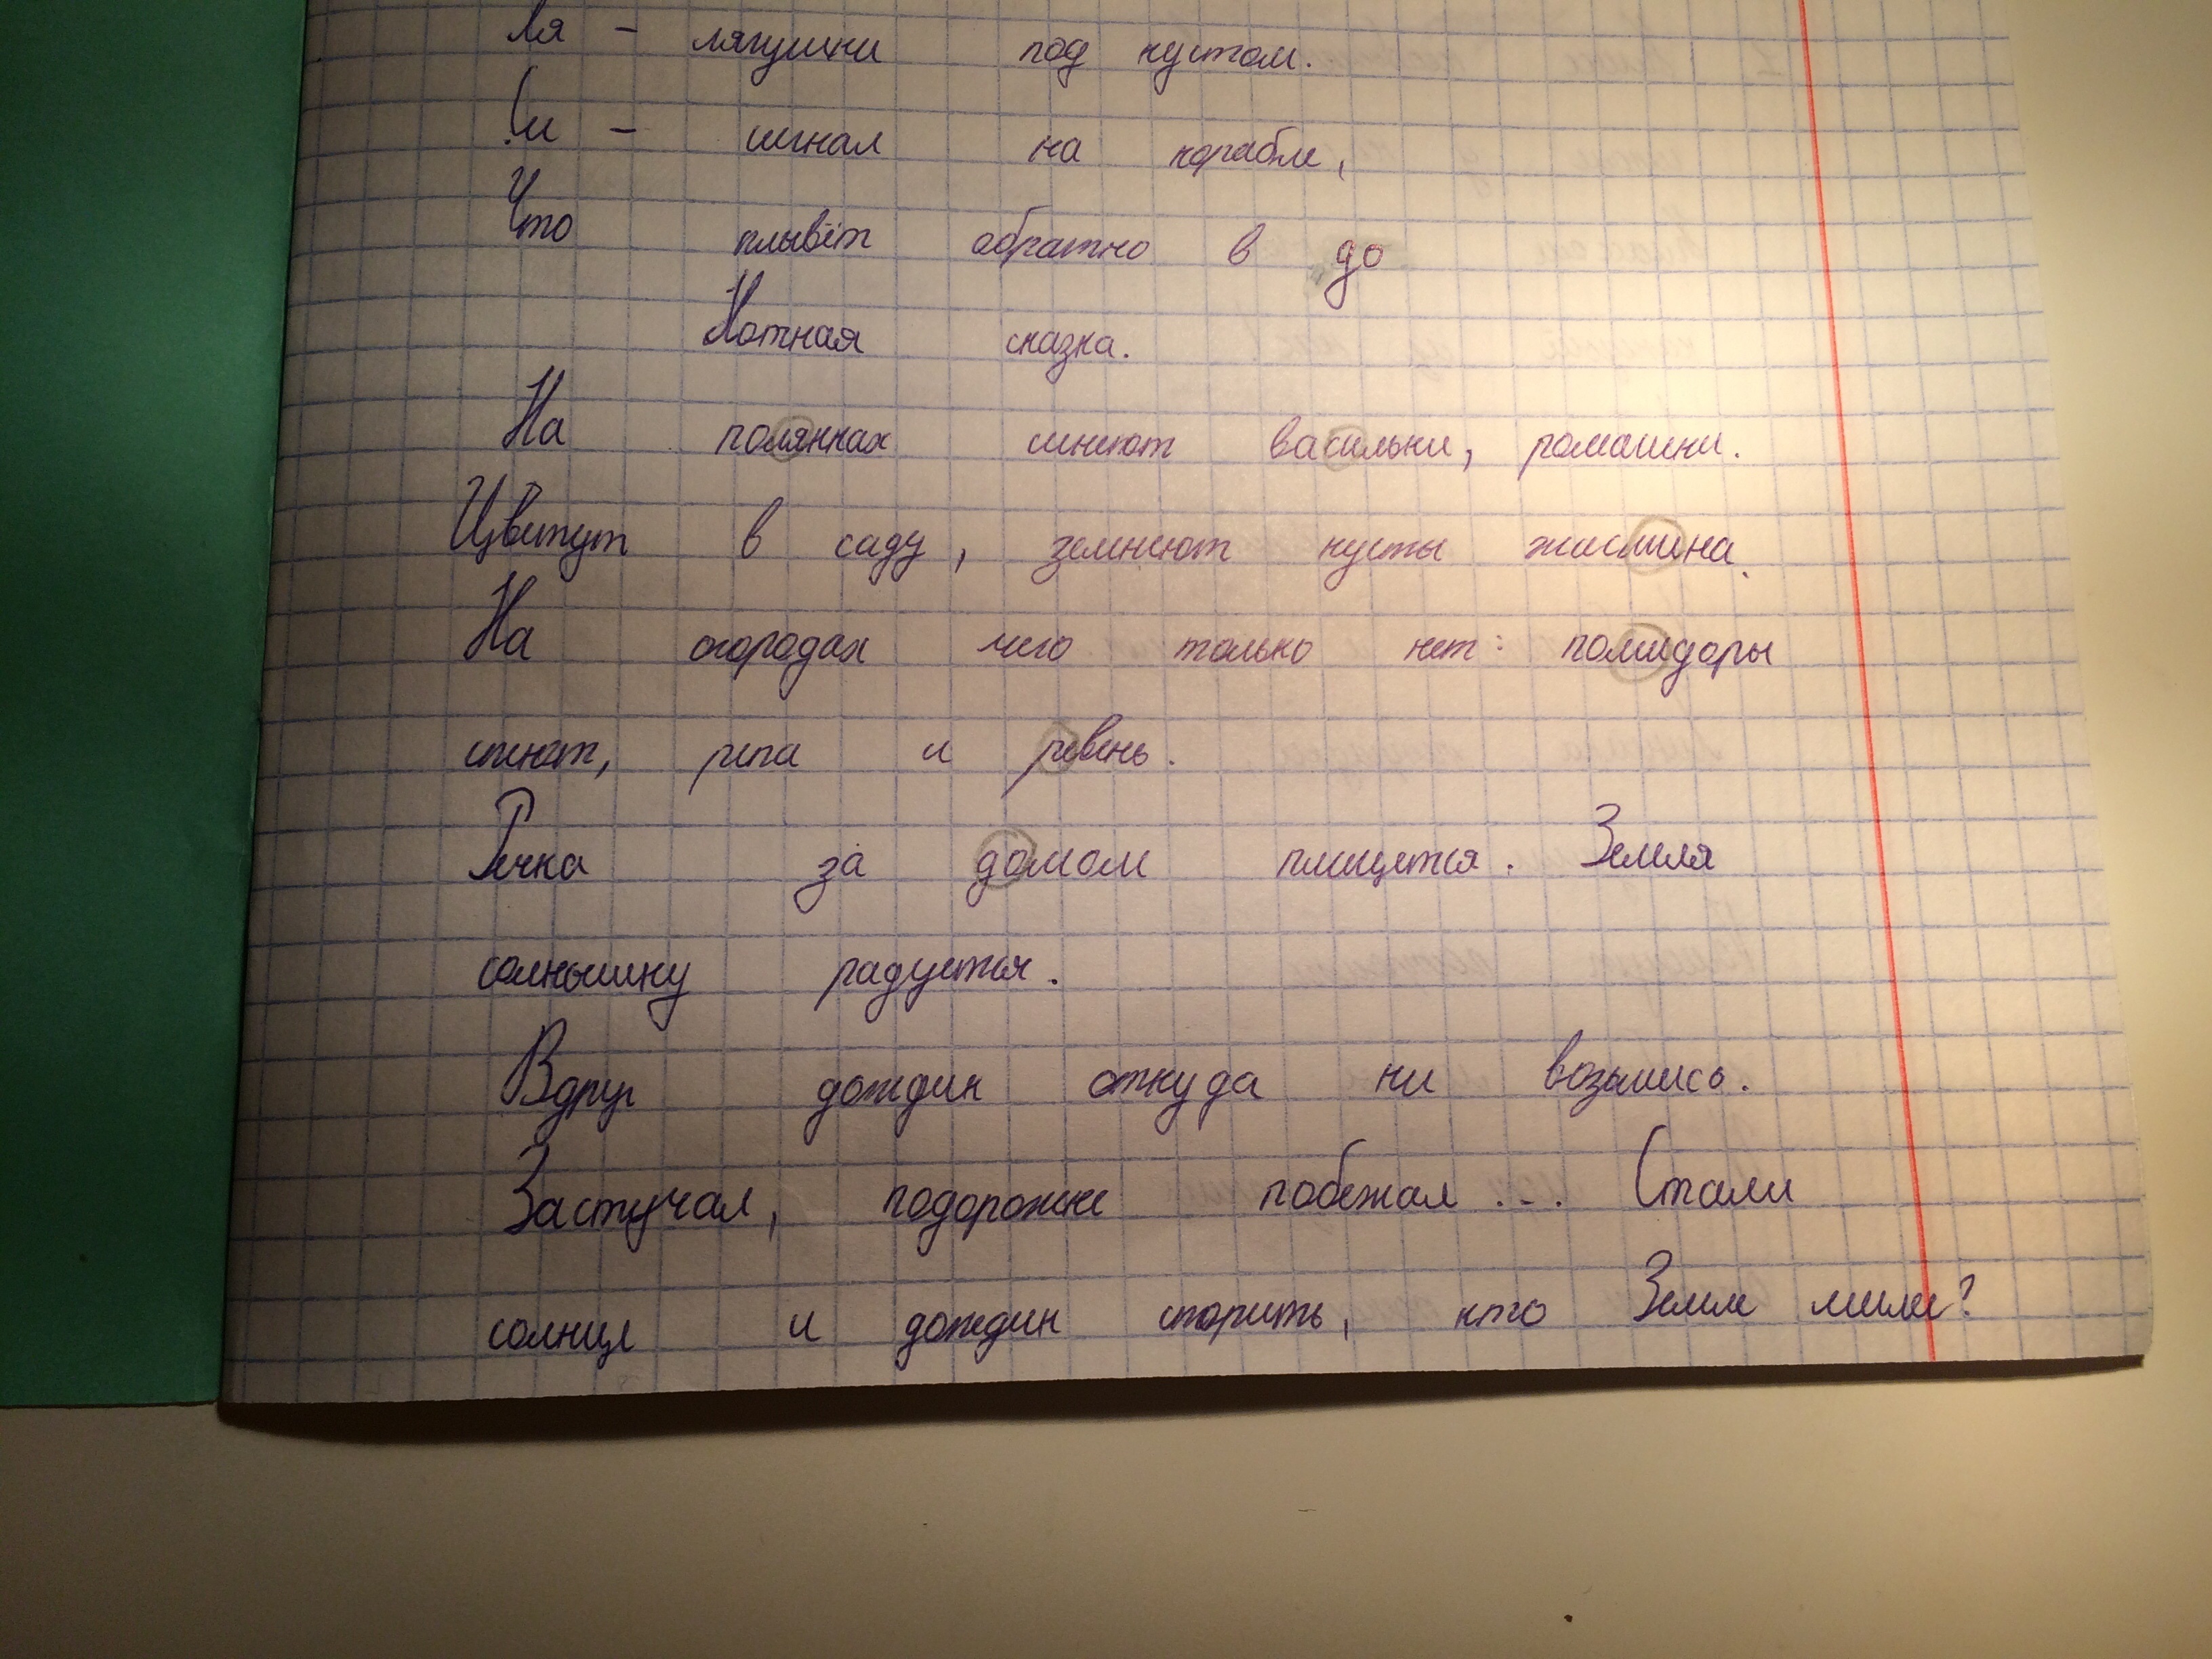 Ля - лягушки под кустом.
Си - сигнал на корабле,
Что плывёт обратно в до
Нотная сказка.
На полянках синеют васильки, ромашки.
Цветут в саду, зеленеют кусты жасмина.
На огородах чего только нет: помидоры
спеют, репа и ревень.
Речка за домом плещется. Земля
солнышку радуется.
Вдруг дождик откуда ни возьмись.
Застучал, по дорожке побежал... Стали
солнце и дождик спорить, кто Земле милее?